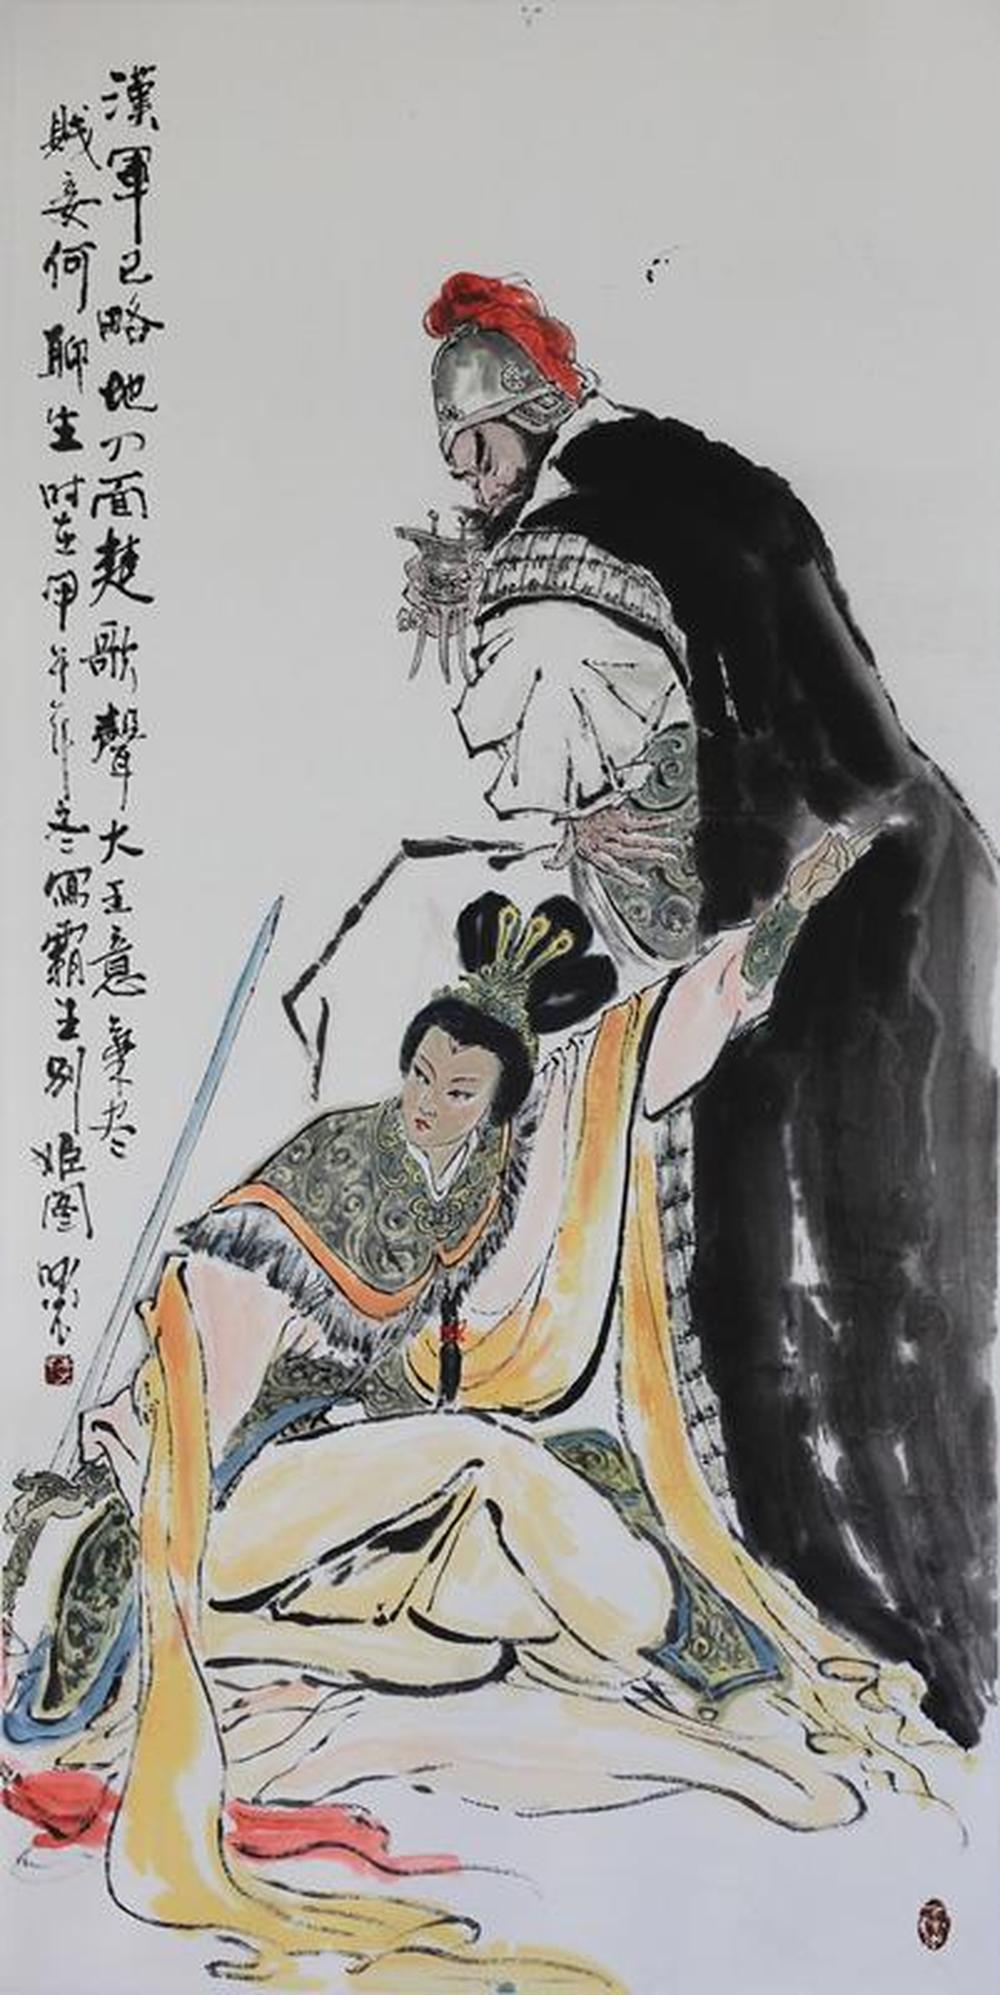 漢軍已略地四面楚歌聲大王意氣尽
賤妾何聊生时在甲午年冬寫霸王别姬图